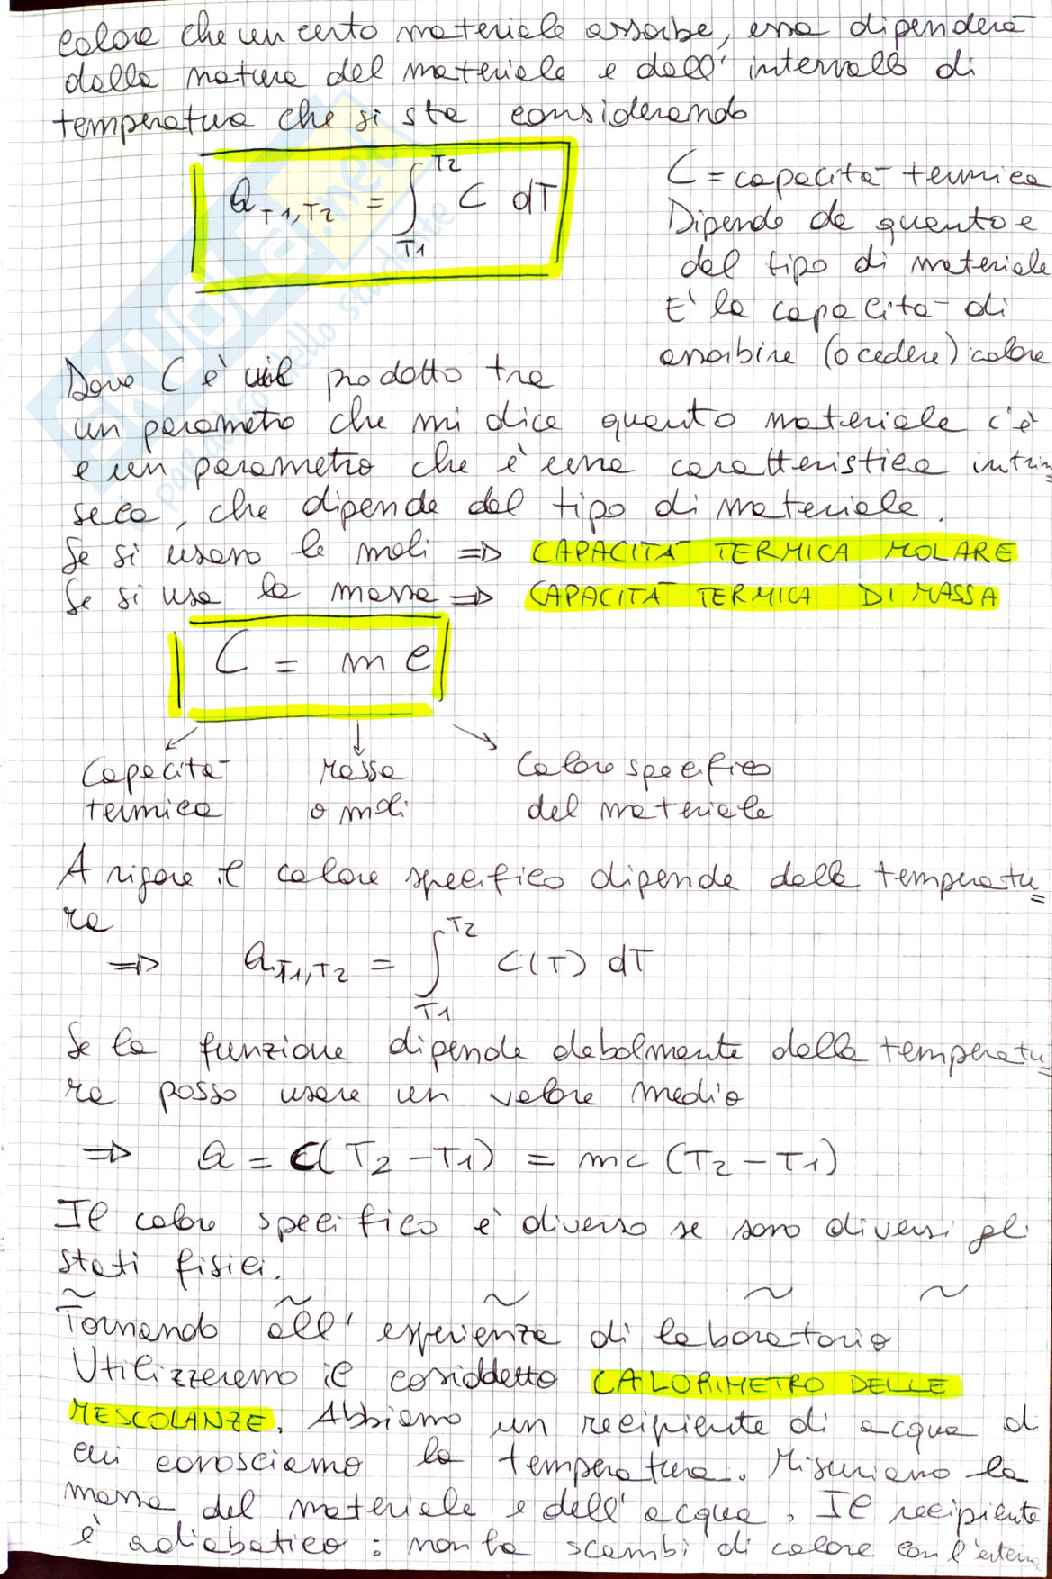 calore che un certo materiale assorbe, essa dipenderà
dalla natura del materiale e dall'intervallo di
temperatura che si sta considerando
Q T1,T2 = ∫ T1 T2 C dT
C = capacità termica
Dipende da quanto e
dal tipo di materiale
E' la capacità di
assorbire (o cedere) calore
Dove C è il prodotto tra
un parametro che mi dice quanto materiale c'è
e un parametro che è una caratteristica intrin
seca, che dipende dal tipo di materiale.
Se si usano le moli => CAPACITÀ TERMICA MOLARE
Se si usa la massa => CAPACITÀ TERMICA DI MASSA
C = m c
Capacità termica
Massa o moli
Calore specifico del materiale
A rigore il calore specifico dipende dalla temperatu=
ra
=> Q T1,T2 = ∫ T1 T2 C(T) dT
Se la funzione dipende debolmente dalla temperatu=
ra posso usare un valore medio
=> Q = C(T2 - T1) = mc (T2 - T1)
Il calore specifico è diverso se sono diversi gli
stati fisici.
~ ~ ~ ~ ~
Tornando all'esperienza di laboratorio
Utilizzeremo il cosiddetto CALORIMETRO DELLE
MESCOLANZE. Abbiamo un recipiente di acqua di
cui conosciamo la temperatura. Misuriamo la
massa del materiale e dell'acqua. Il recipiente
è adiabatico: non ha scambi di calore con l'esterno
SKUOLA.net